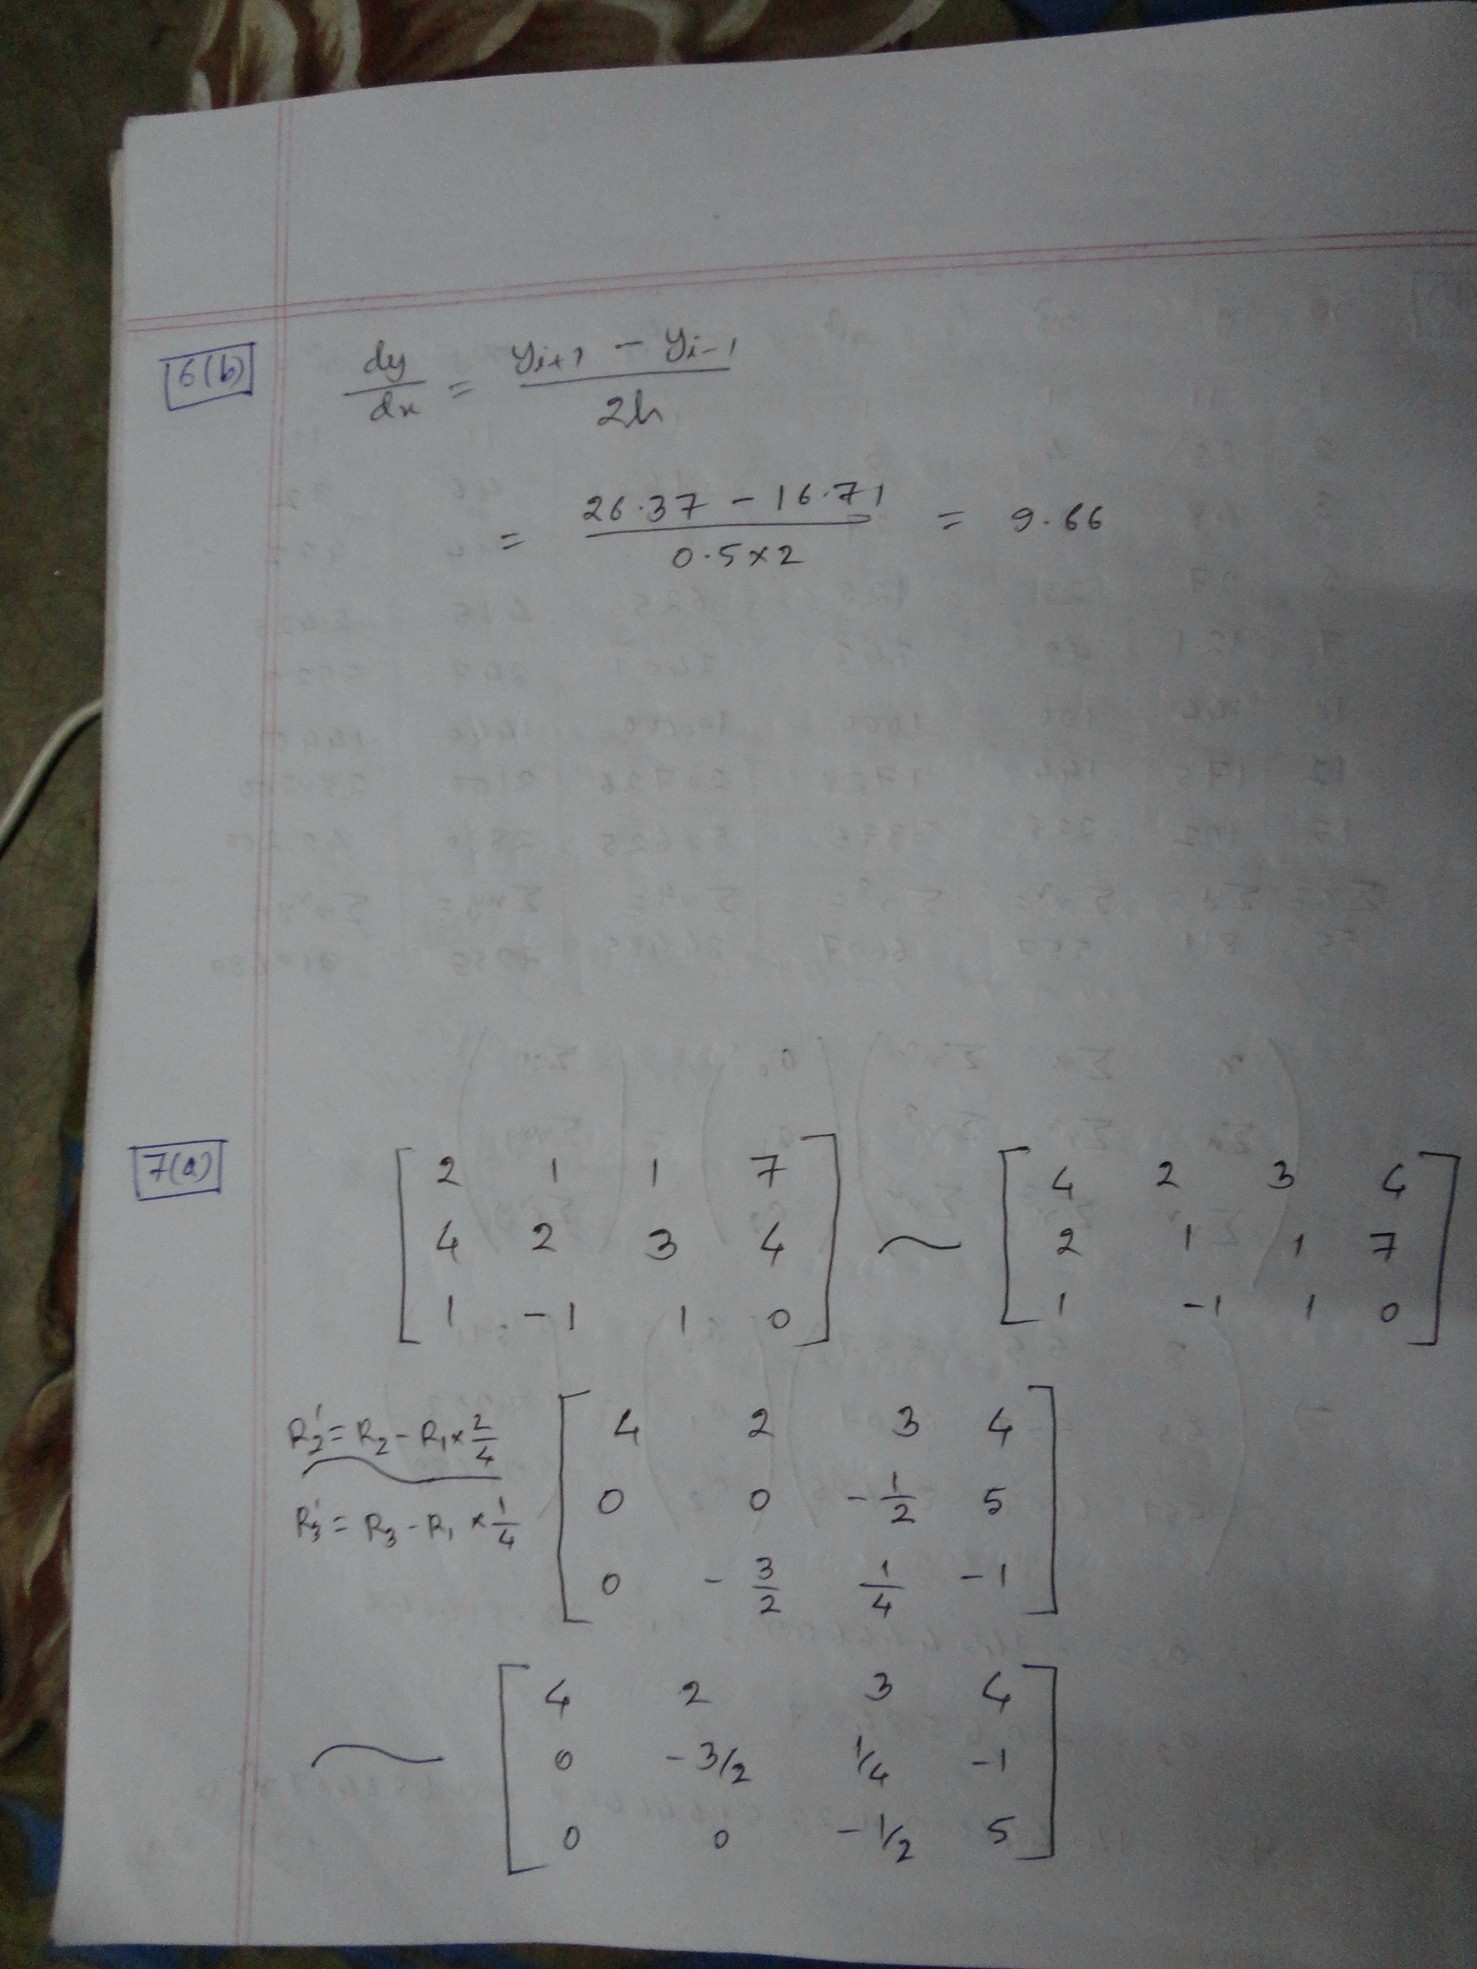 6(b) dy/dx = (y_{i+1} - y_{i-1}) / 2h
= (26.37 - 16.71) / (0.5×2) = 9.66
7(a) [2 1 1 7; 4 2 3 4; 1 -1 1 0] ~ [4 2 3 4; 2 1 1 7; 1 -1 1 0]
R2' = R2 - R1 × 2/4
R3' = R3 - R1 × 1/4
[4 2 3 4; 0 0 -1/2 5; 0 -3/2 1/4 -1]
~ [4 2 3 4; 0 -3/2 1/4 -1; 0 0 -1/2 5]